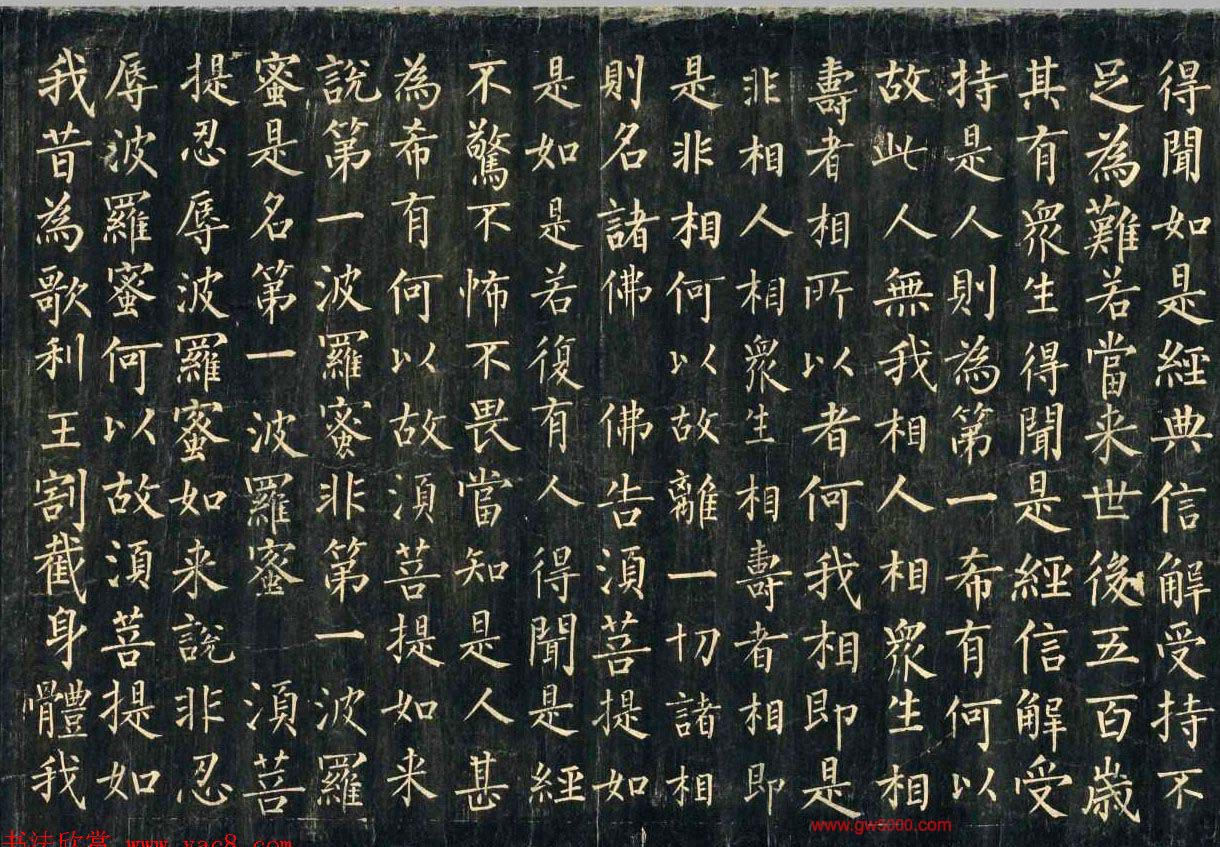 得聞如是經典信解受持不
足為難若當来世後五百歲
其有衆生得聞是經信解受
持是人則為第一希有何以
故此人無我相人相衆生相
壽者相所以者何我相即是
非相人相衆生相壽者相即
是非相何以故離一切諸相
則名諸佛 佛告須菩提如
是如是若復有人得聞是經
不驚不怖不畏當知是人甚
為希有何以故須菩提如来
說第一波羅蜜非第一波羅
蜜是名第一波羅蜜 須菩
提忍辱波羅蜜如来說非忍
辱波羅蜜何以故須菩提如
我昔為歌利王割截身體我
www.gw5000.com
书法欣赏 www.yac8.com